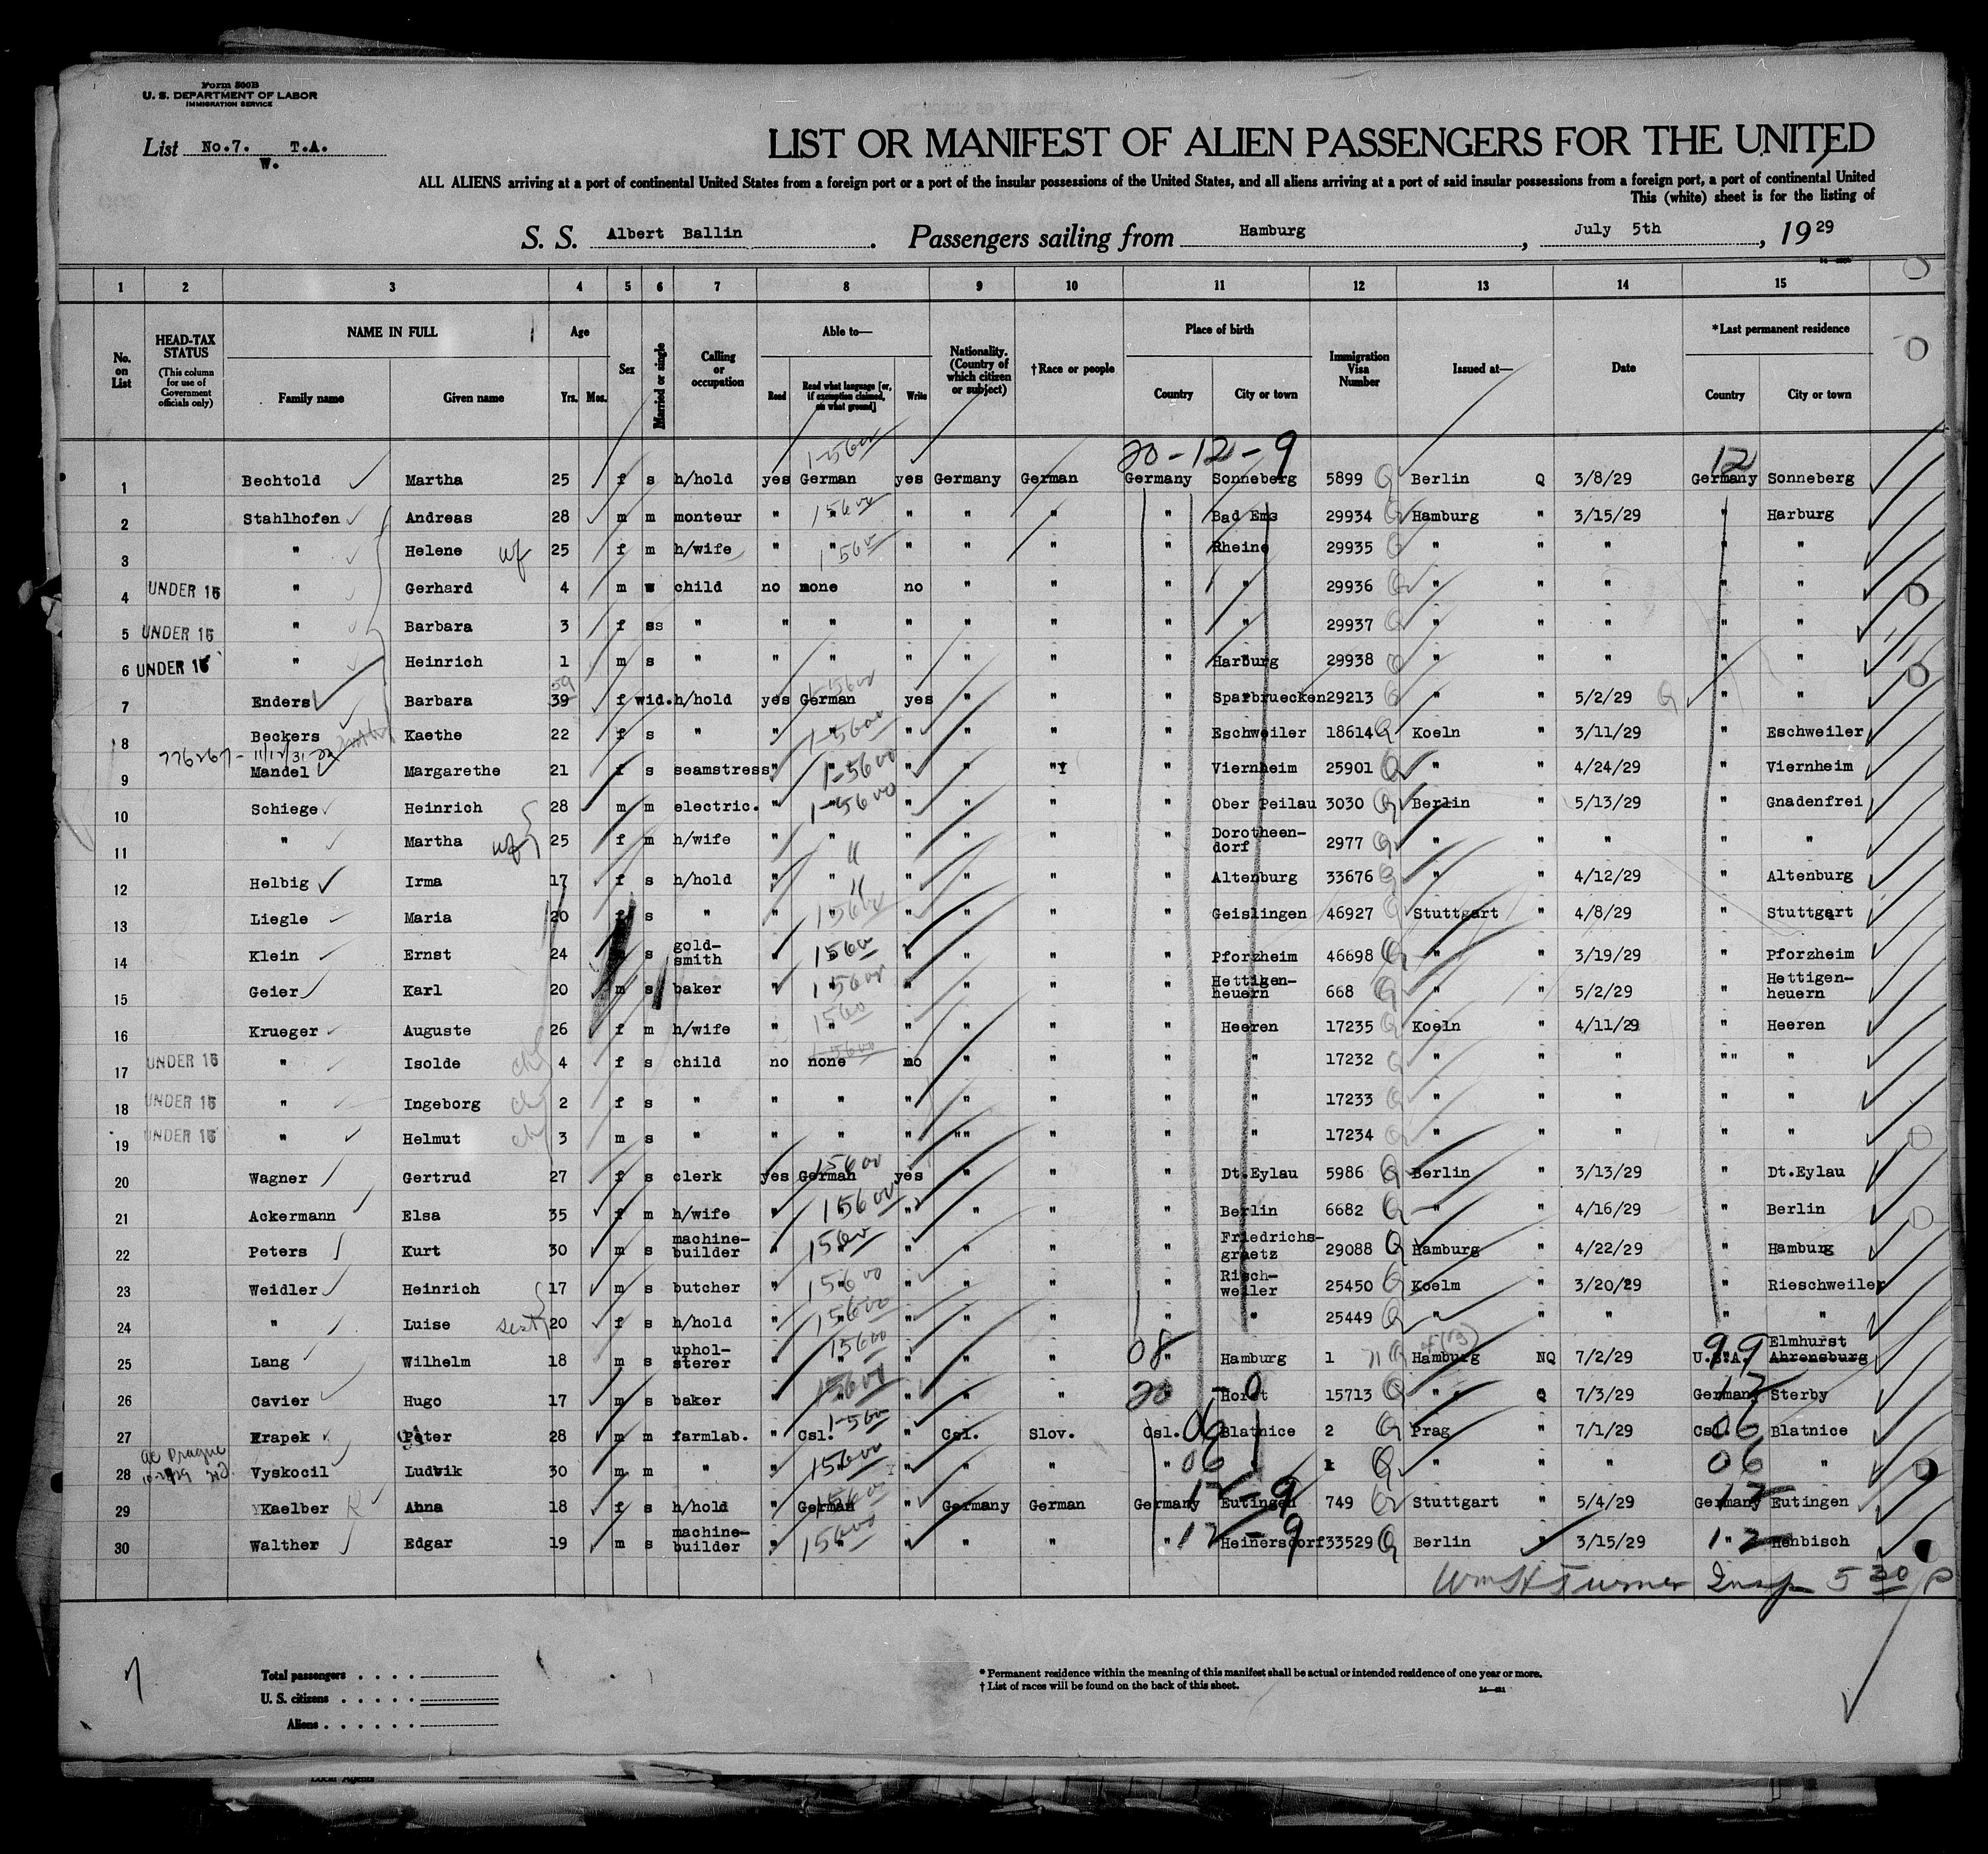 Form 500B
U. S. DEPARTMENT OF LABOR
IMMIGRATION SERVICE
List No.7. T.A.
W.
LIST OR MANIFEST OF ALIEN PASSENGERS FOR THE UNITED
ALL ALIENS arriving at a port of continental United States from a foreign port or a port of the insular possessions of the United States, and all aliens arriving at a port of said insular possessions from a foreign port, a port of continental United
This (white) sheet is for the listing of
S. S. Albert Ballin. Passengers sailing from Hamburg, July 5th, 1929
1 2 3 4 5 6 7 8 9 10 11 12 13 14 15
No. on List
HEAD-TAX STATUS (This column for use of Government officials only)
NAME IN FULL Family name Given name
Age Yrs. Mos.
Sex
Married or single
Calling or occupation
Able to— Read Read what language [or, if exemption claimed, on what ground] Write
Nationality. (Country of which citizen or subject)
†Race or people
Place of birth Country City or town
Immigration Visa Number
Issued at—
Date
*Last permanent residence Country City or town
20-12-9 12
1 Bechtold Martha 25 f s h/hold yes German yes Germany German Germany Sonneberg 5899 Q Berlin Q 3/8/29 Germany Sonneberg
2 Stahlhofen Andreas 28 m m monteur " " " " " " Bad Ems 29934 Q Hamburg " 3/15/29 " Harburg
3 " Helene wf 25 f m h/wife " " " " " " Rheine 29935 Q " " " " "
4 UNDER 16 " Gerhard 4 m child no none no " " " " 29936 Q " " " " "
5 UNDER 16 " Barbara 3 f ss " " " " " " " " 29937 Q " " " " "
6 UNDER 16 " Heinrich 1 m s " " " " " " " Harburg 29938 Q " " " " "
7 Enders Barbara 39 f wid. h/hold yes German yes " " " Saarbruecken 29213 Q " " 5/2/29 Q " "
8 Beckers Kaethe 22 f s " " " " " " " Eschweiler 18614 Q Koeln " 3/11/29 " Eschweiler
9 Mandel Margarethe 21 f s seamstress " " " " " " Viernheim 25901 Q " " 4/24/29 " Viernheim
10 Schiege Heinrich 28 m m electric. " " " " " " Ober Peilau 3030 Q Berlin " 5/13/29 " Gnadenfrei
11 " Martha wf 25 f m h/wife " " " " " " Dorotheen-dorf 2977 Q " " " " "
12 Helbig Irma 17 f s h/hold " " " " " " Altenburg 33676 Q " " 4/12/29 " Altenburg
13 Liegle Maria 20 f s " " " " " " " Geislingen 46927 Q Stuttgart " 4/8/29 " Stuttgart
14 Klein Ernst 24 s gold-smith " " " " " " Pforzheim 46698 Q " " 3/19/29 " Pforzheim
15 Geier Karl 20 m s baker " " " " " " Hettigen-heuern 668 Q " " 5/2/29 " Hettigen-heuern
16 Krueger Auguste 26 f m h/wife " " " " " " Heeren 17235 Q Koeln " 4/11/29 " Heeren
17 UNDER 16 " Isolde 4 f s child no none no " " " " 17232 Q " " " "" "
18 UNDER 16 " Ingeborg 2 f s " " " " " " " " 17233 Q " " " " "
19 UNDER 16 " Helmut 3 m s " " " " "" " " " 17234 Q " " " " "
20 Wagner Gertrud 27 f s clerk yes German yes " " " Dt.Eylau 5986 Q Berlin " 3/13/29 " Dt.Eylau
21 Ackermann Elsa 35 f m h/wife " " " " " " Berlin 6682 Q " " 4/16/29 " Berlin
22 Peters Kurt 30 m s machine-builder " " " " " " Friedrichs-graetz 29088 Q Hamburg " 4/22/29 " Hamburg
23 Weidler Heinrich 17 m s butcher " " " " " " Risch-weiler 25450 Q Koelm " 3/20/29 " Rieschweiler
24 " Luise sist 20 f s h/hold " " " " " " " 25449 Q " " " " "
25 Lang Wilhelm 18 m s uphol-sterer " " " " " 08 " Hamburg 1 Hamburg NQ 7/2/29 U.S.A. 99 Elmhurst Ahrensburg
26 Cavier Hugo 17 m s baker " " " " " 20 - 9 Horst 15713 Q " Q 7/3/29 Germany 12 Sterby
27 Krapek Peter 28 m m farmlab. " Csl. " Csl. Slov. Csl. 06 Blatnice 2 Q Prag " 7/1/29 Csl. 06 Blatnice
28 Vyskocil Ludwik 30 m m " " " " " " " 06 " 1 Q " " " 06 "
29 Kaelber Anna 18 f s h/hold " German " Germany German Germany 12-9 Eutingen 749 Q Stuttgart " 5/4/29 Germany 12 Eutingen
30 Walther Edgar 19 m s machine-builder " " " " " " 12-9 Heinersdorf 33529 Q Berlin " 3/15/29 " 12 Henbisch
Wm H Turner Insp 5 30/P
7
Total passengers
U. S. citizens
Aliens
* Permanent residence within the meaning of this manifest shall be actual or intended residence of one year or more.
† List of races will be found on the back of this sheet.